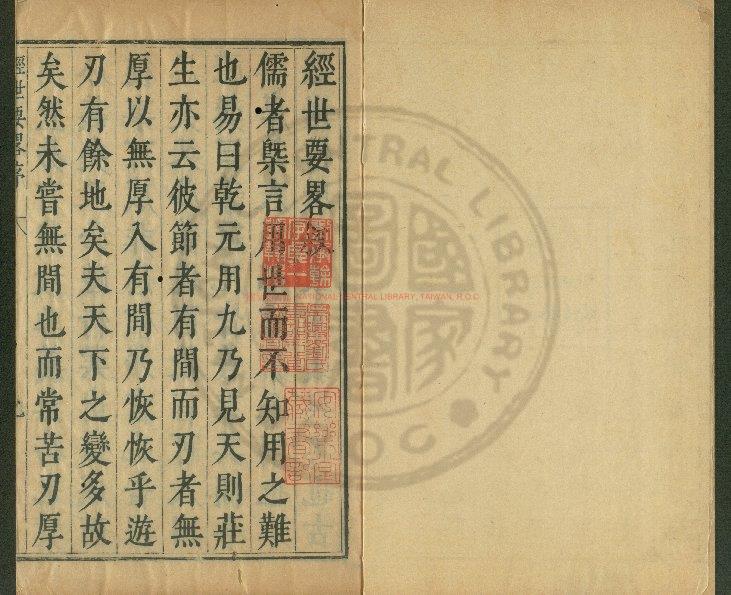 經世要畧
儒者槩言用世而不知用之難
也易曰乾元用九乃見天則莊
生亦云彼節者有間而刃者無
厚以無厚入有間乃恢恢乎遊
刃有餘地矣夫天下之變多故
矣然未嘗無間也而常苦刃厚
經世要畧序
NATIONAL CENTRAL LIBRARY, TAIWAN, R.O.C
CENTRAL LIBRARY
國家圖書館